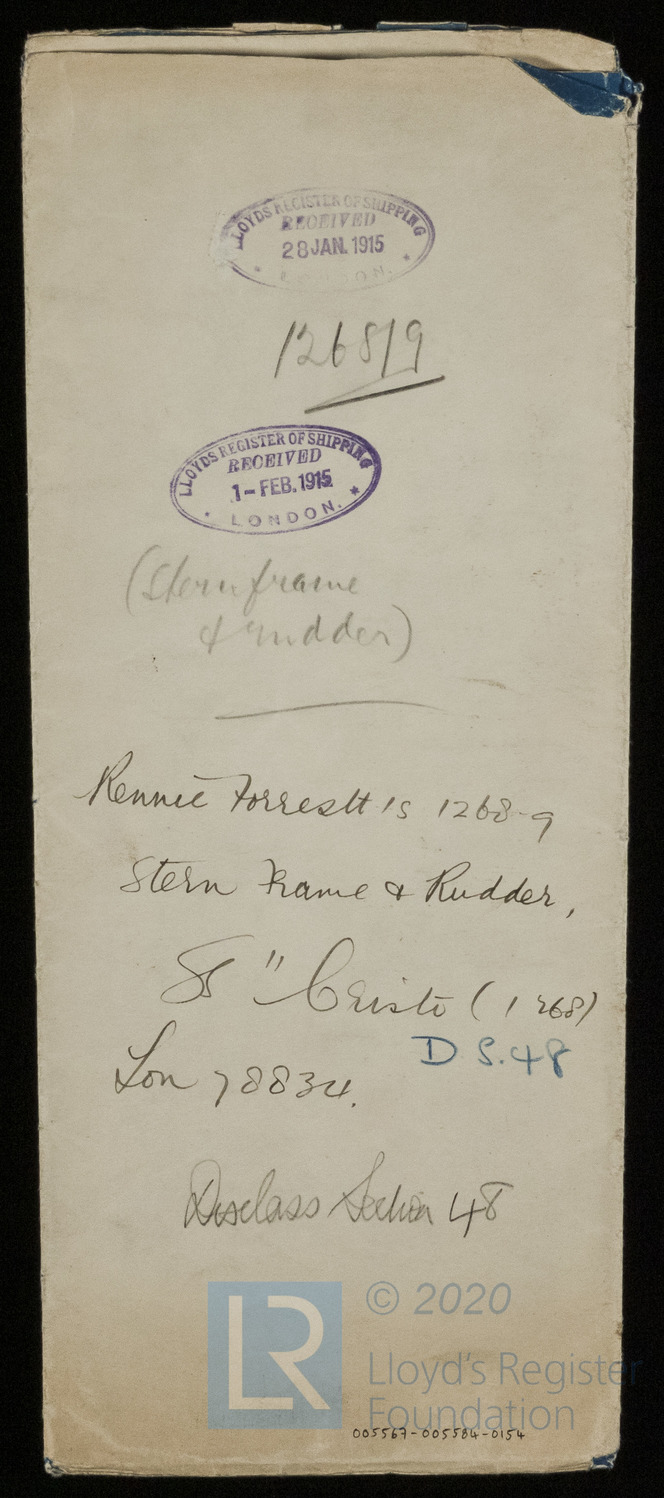 LLOYDS REGISTER OF SHIPPING
RECEIVED
28 JAN. 1915
LONDON.
1268/9
LLOYDS REGISTER OF SHIPPING
RECEIVED
1-FEB. 1915
LONDON.
(Stern frame
& rudder)
Rennie Forrestt 1268-9
Stern Frame & Rudder,
SS "Cristo (1268)
D S.48
Lon 78834.
Disclass Section 48
LR
© 2020
Lloyd's Register
Foundation
005567-005584-0154